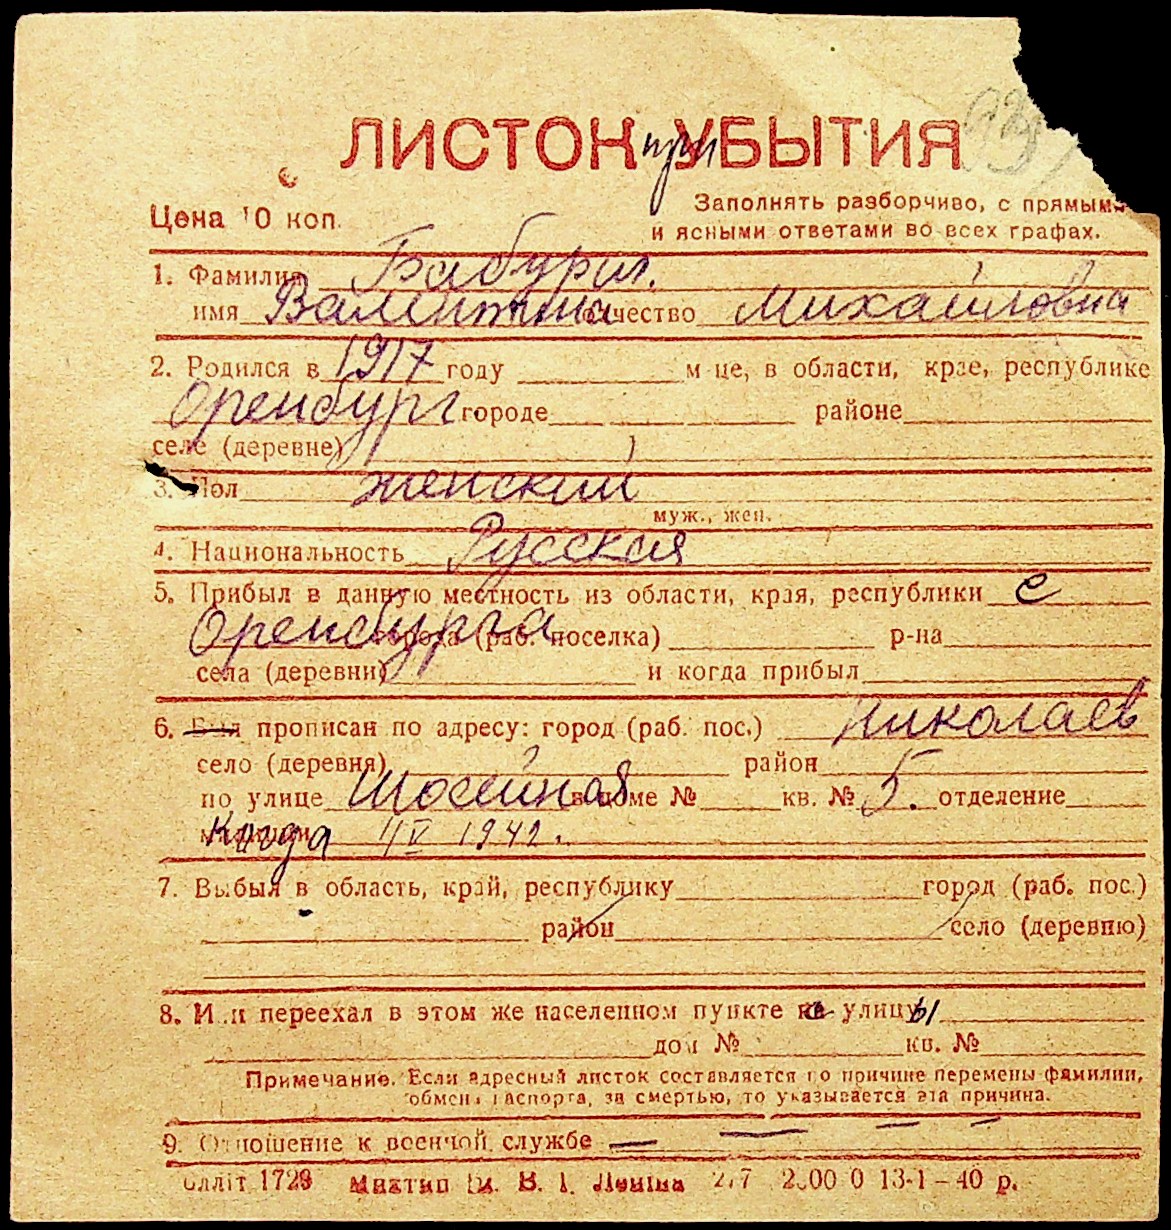 ЛИСТОК при УБЫТИЯ
Цена 10 коп.
Заполнять разборчиво, с прямыми
и ясными ответами во всех графах.
1. Фамилия Бабурил.
имя Валентина отчество Михайловна
2. Родился в 1917 году м-це, в области, крае, республике
Оренбург городе районе
селе (деревне)
3. Пол женский
муж., жен.
4. Национальность Русская
5. Прибыл в данную местность из области, края, республики с
Оренбурга города (раб. поселка) р-на
села (деревни) и когда прибыл
6. Был прописан по адресу: город (раб. пос.) Николаев
село (деревня) район
по улице Шосейная в доме № кв. № 5. отделение
милиции Когда 1/IV 1942.
7. Выбыл в область, край, республику город (раб. пос.)
район село (деревню)
8. Или переехал в этом же населенном пункте с улицы
дом № кв. №
Примечание. Если адресный листок составляется по причине перемены фамилии,
обмена паспорта, за смертью, то указывается эта причина.
9. Отношение к военной службе — — — —
Облліт 1728 Миктип ім. В. І. Леніна 13-1-40 р.